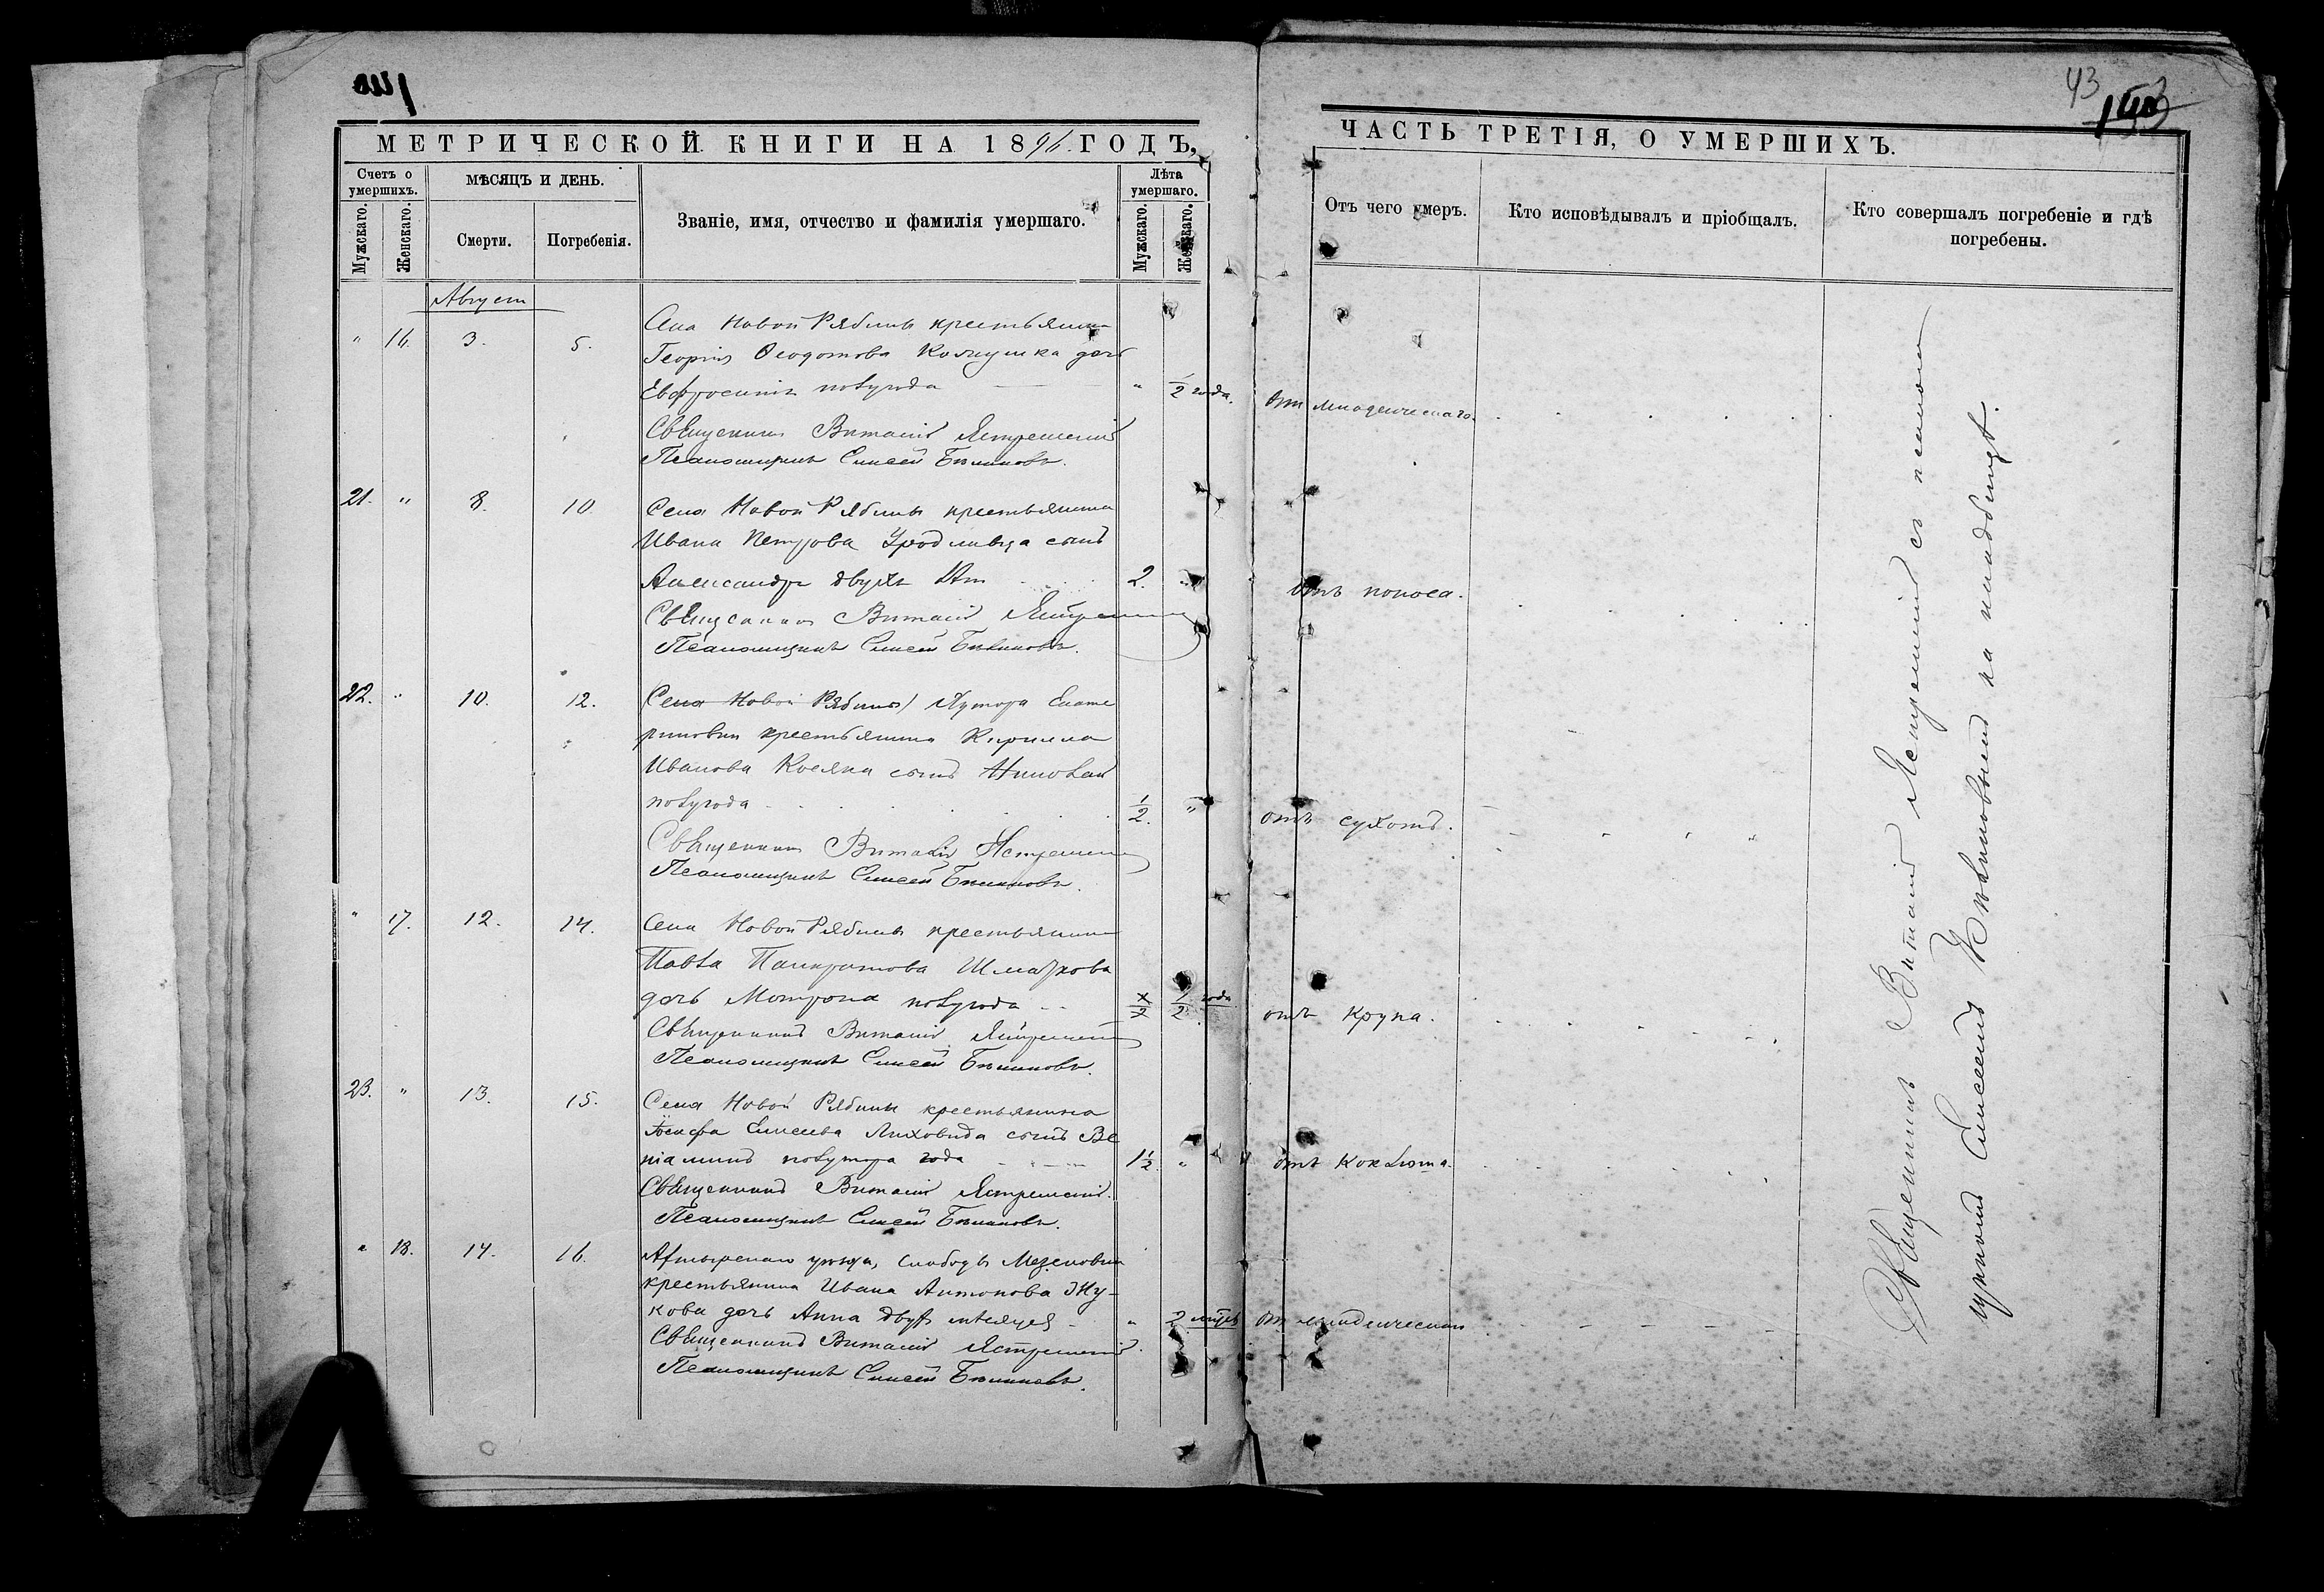 43
МЕТРИЧЕСКОЙ КНИГИ НА 1896 ГОДЪ,
Счетъ о умершихъ.
Мужскаго.
Женскаго.
МѢСЯЦЪ И ДЕНЬ.
Смерти.
Погребенія.
Званіе, имя, отчество и фамилія умершаго.
Лѣта умершаго.
Мужскаго.
Женскаго.
Августъ
" 16. 3. 5. Села Новой Рябины крестьянина
Георгія Ѳеодотова дочь
Евфросинія полугода " 1/2 года.
Священникъ Виталій Ястремскій
Псаломщикъ Елисей
21. " 8. 10. Села Новой Рябины крестьянина
Ивана Петрова Уродливца сынъ
Александръ двухъ лѣтъ 2. "
Священникъ Виталій Ястремскій
Псаломщикъ Елисей
22. " 10. 12. Села Новой Рябины Хутора Екате
риновки крестьянина Кирилла
Иванова Косяка сынъ Николай
полугода 1/2. "
Священникъ Виталій Ястремскій
Псаломщикъ Елисей
" 17. 12. 14. Села Новой Рябины крестьянина
Павла Панкратова
дочь Матрона полугода 1/2 года
Священникъ Виталій Ястремскій
Псаломщикъ Елисей
23. " 13. 15. Села Новой Рябины крестьянина
Іосифа Елисеева Лиховида сынъ Ве
ніаминъ полутора года 1 1/2 "
Священникъ Виталій Ястремскій
Псаломщикъ Елисей
" 18. 14. 16. Ахтырскаго уѣзда, слободы Мезеновки
крестьянина Ивана Антонова Жу-
кова дочь Анна двухъ мѣсяцевъ " 2 мѣс
Священникъ Виталій Ястремскій
Псаломщикъ Елисей
ЧАСТЬ ТРЕТІЯ, О УМЕРШИХЪ.
Отъ чего умеръ.
Кто исповѣдывалъ и пріобщалъ.
Кто совершалъ погребеніе и гдѣ погребены.
отъ младенческаго.
отъ поноса.
отъ сухотъ.
отъ крупа.
отъ коклюша.
отъ младенческаго
Священникъ Виталій Ястремскій съ псаломщикомъ
Елисеемъ на кладбищѣ.